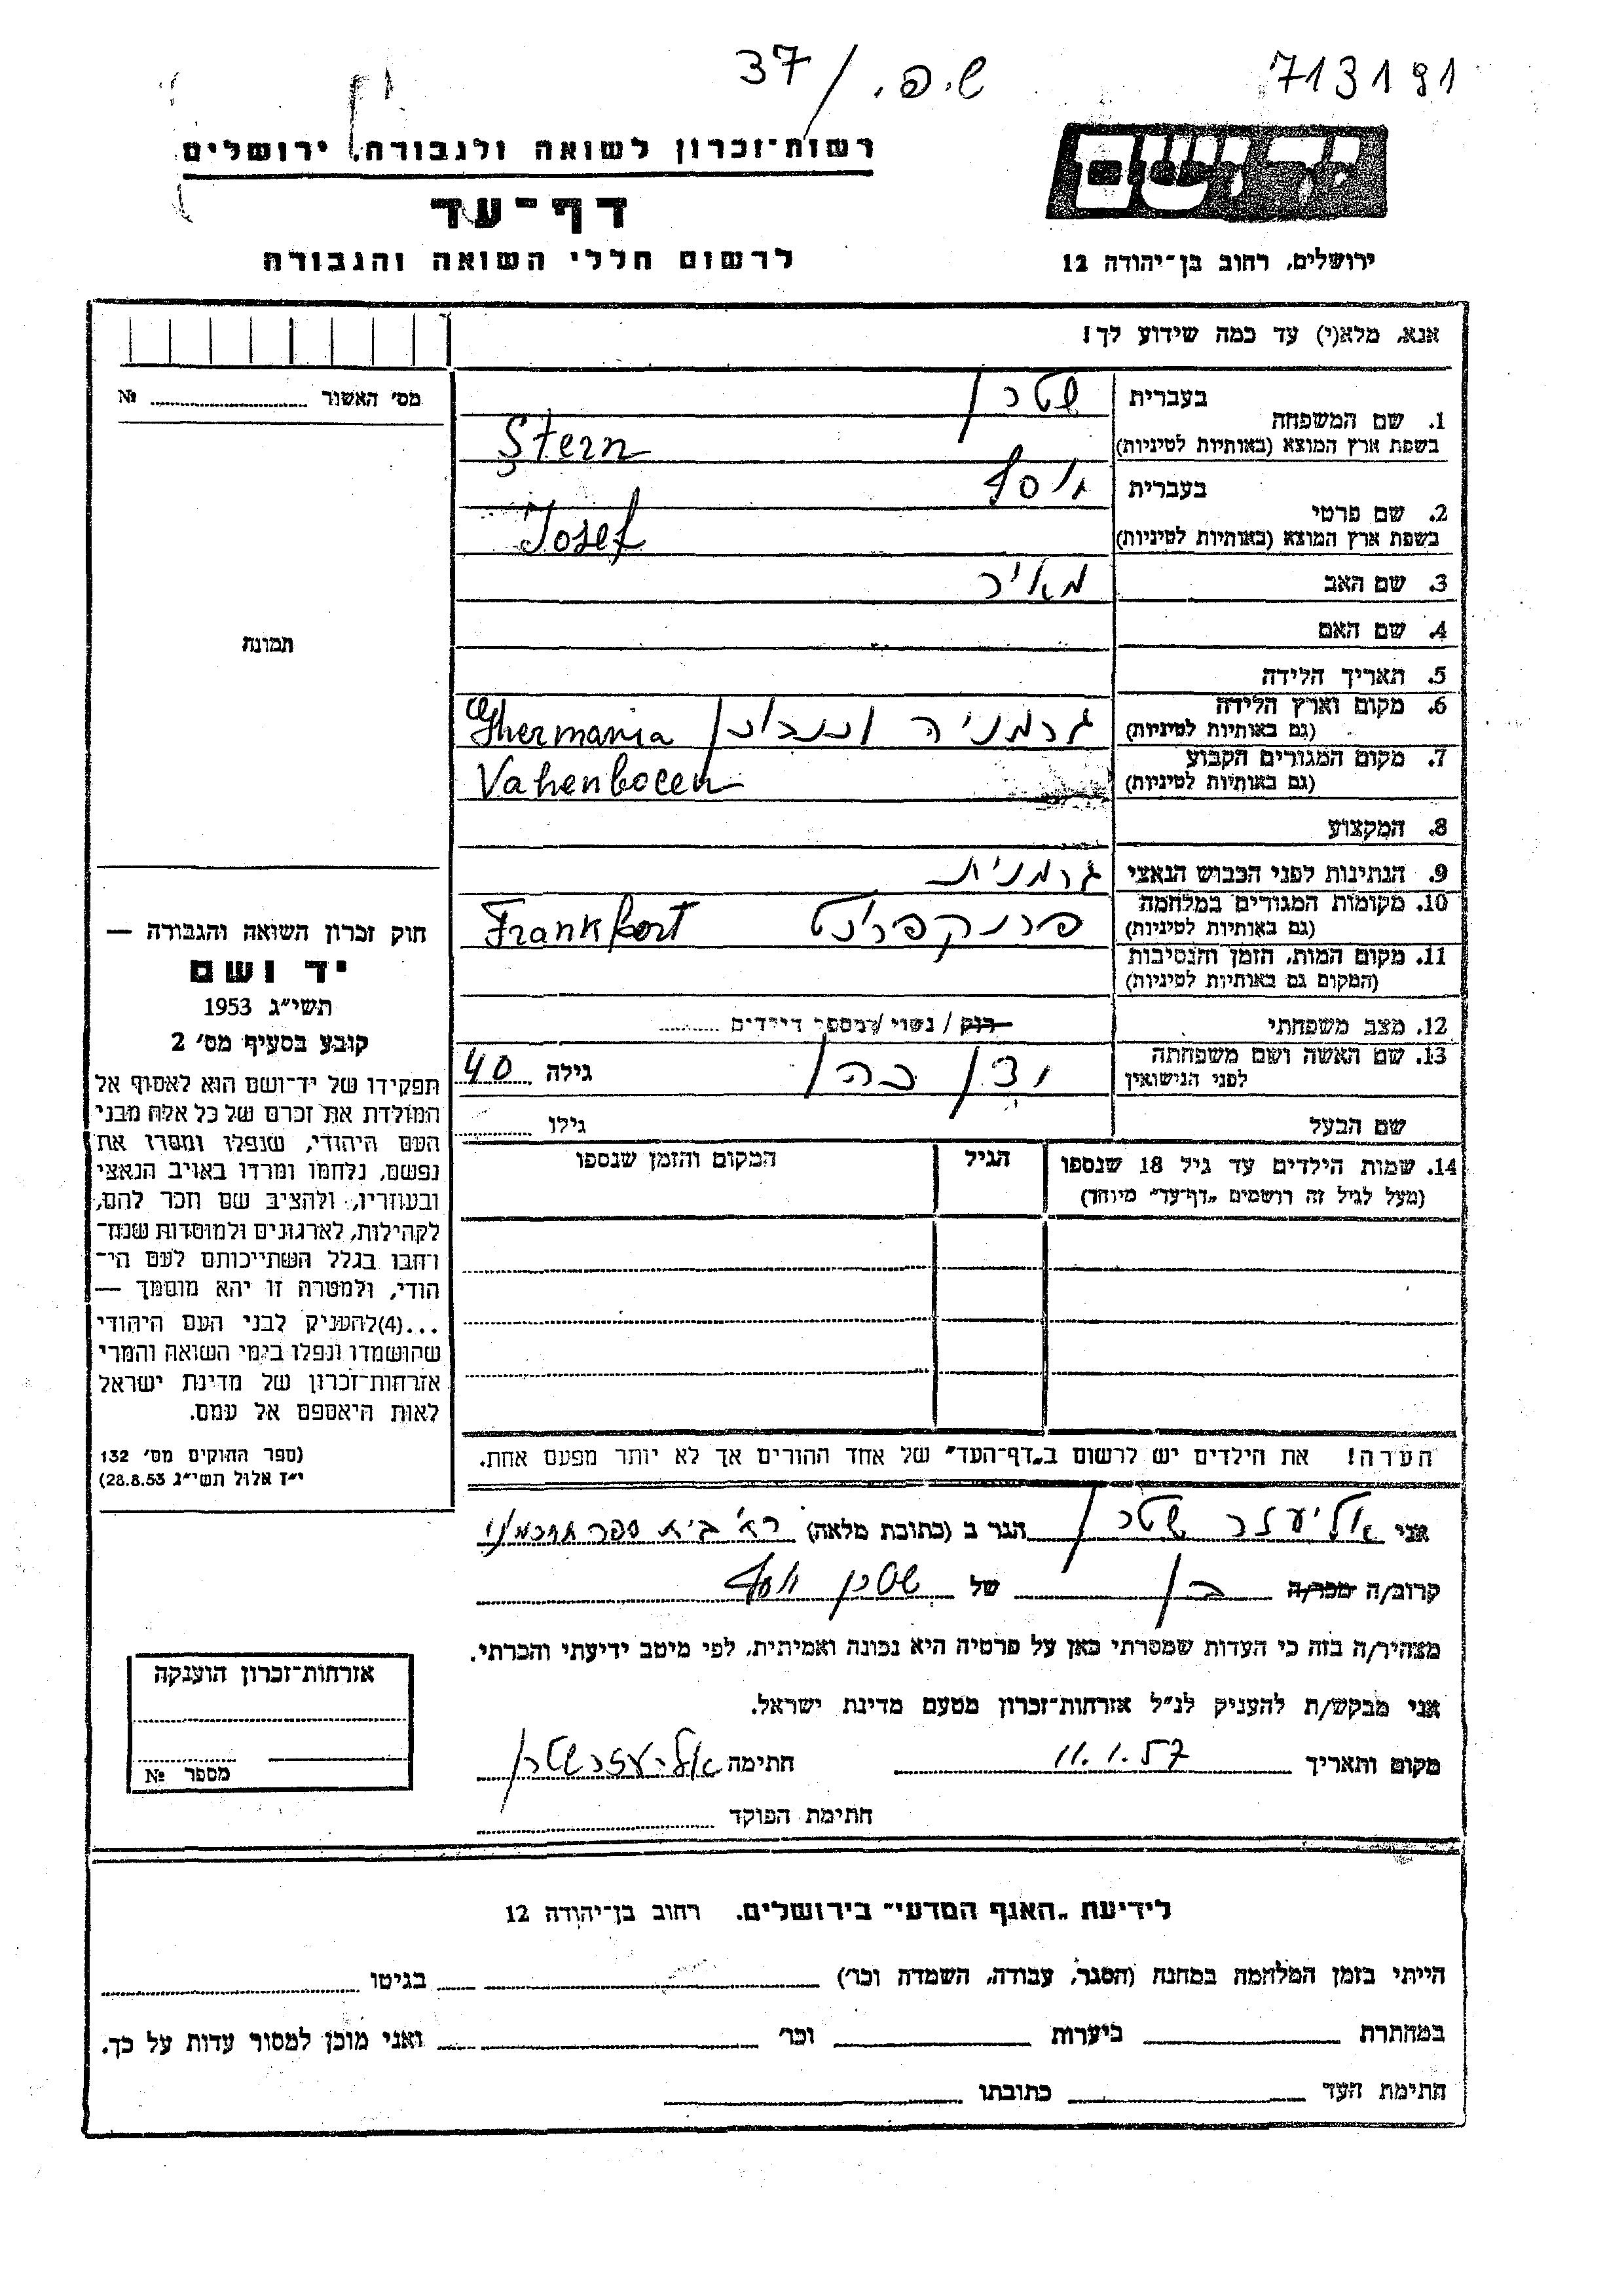 713191
ש.פ. / 37
יד ושם
רשות־זכרון לשואה ולגבורה, ירושלים
דף־עד
ירושלים, רחוב בן־יהודה 12
לרשום חללי השואה והגבורה
אנא, מלא(י) עד כמה שידוע לך!
מס' האשור ........ №
תמונה
1. שם המשפחה
בעברית שטרן
בשפת ארץ המוצא (באותיות לטיניות) Stern
2. שם פרטי
בעברית יוסף
בשפת ארץ המוצא (באותיות לטיניות) Josef
3. שם האב מאיר
4. שם האם
5. תאריך הלידה
6. מקום וארץ הלידה גרמניה
(גם באותיות לטיניות) Ghermania
7. מקום המגורים הקבוע
(גם באותיות לטיניות) Vahenbocen
8. המקצוע
9. הנתינות לפני הכבוש הנאצי גרמנית
10. מקומות המגורים במלחמה
(גם באותיות לטיניות) פרנקפורט Frankfort
11. מקום המות, הזמן והנסיבות
(המקום גם באותיות לטיניות)
12. מצב משפחתי רוק / נשוי / מספר ילדים ........
13. שם האשה ושם משפחתה
לפני הנישואין כהן גילה 40
שם הבעל גילו ........
14. שמות הילדים עד גיל 18 שנספו הגיל המקום והזמן שנספו
(מעל לגיל זה רושמים "דף־עד" מיוחד)
הערה! את הילדים יש לרשום ב"דף־העד" של אחד ההורים אך לא יותר מפעם אחת.
חוק זכרון השואה והגבורה —
יד ושם
תשי"ג 1953
קובע בסעיף מס' 2
תפקידו של יד־ושם הוא לאסוף אל
המולדת את זכרם של כל אלה מבני
העם היהודי, שנפלו ומסרו את
נפשם, נלחמו ומרדו באויב הנאצי
ובעוזריו, ולהציב שם וזכר להם,
לקהילות, לארגונים ולמוסדות שנח־
רבו בגלל השתייכותם לעם הי־
הודי, ולמטרה זו יהא מוסמך —
...(4) להעניק לבני העם היהודי
שהושמדו ונפלו בימי השואה והמרי
אזרחות־זכרון של מדינת ישראל
לאות היאספם אל עמם.
(ספר החוקים מס' 132
י"ז אלול תשי"ג 28.8.53)
אני אליעזר שטרן הגר ב (כתובת מלאה) בית ספר תחכמוני
קרוב/ה מכר/ה בן של שטרן יוסף
מצהיר/ה בזה כי העדות שמסרתי כאן על פרטיה היא נכונה ואמיתית, לפי מיטב ידיעתי והכרתי.
אני מבקש/ת להעניק לנ"ל אזרחות־זכרון מטעם מדינת ישראל.
מקום ותאריך 11.1.57 חתימה אליעזר שטרן
חתימת הפוקד
אזרחות־זכרון הוענקה
מספר №
לידיעת "האגף המדעי" בירושלים, רחוב בן־יהודה 12
הייתי בזמן המלחמה במחנה (הסגר, עבודה, השמדה וכו') בגיטו
במחתרת ביערות וכו' ואני מוכן למסור עדות על כך.
חתימת העד כתובתו